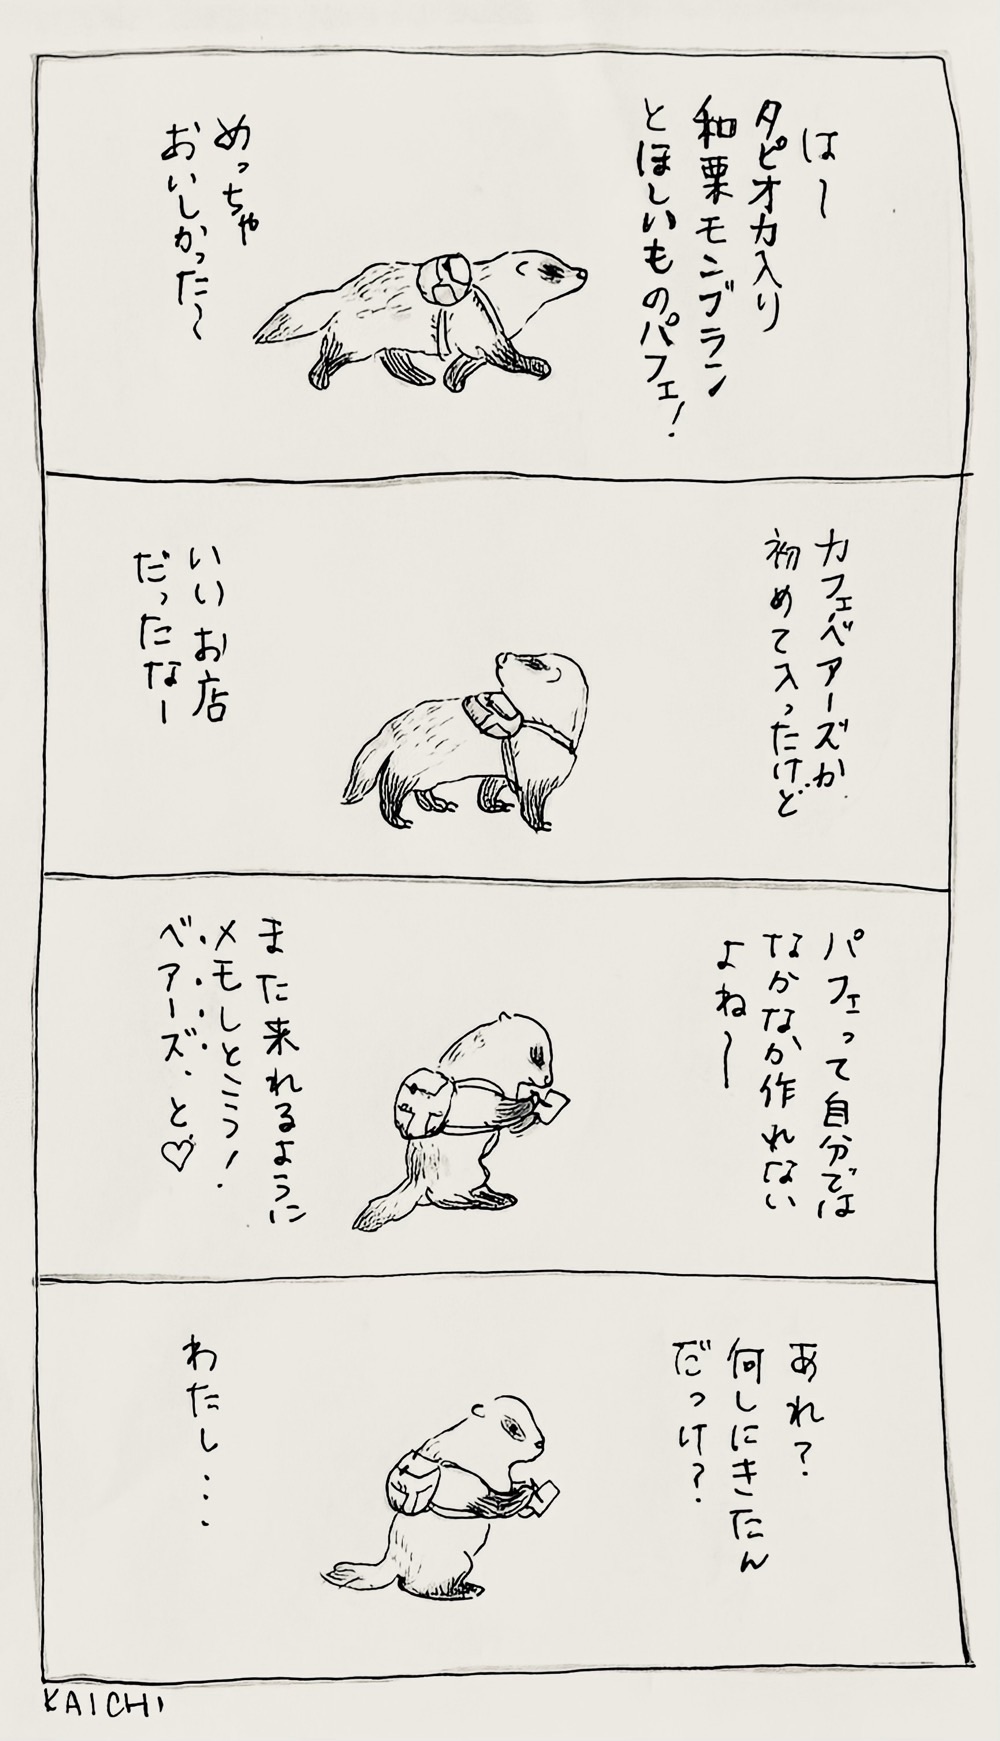 は〜
タピオカ入り
和栗モンブラン
とほしいものパフェ!
めっちゃ
おいしかった〜
カフェベアーズか
初めて入ったけど
いいお店
だったなー
パフェって自分では
なかなか作れない
よね〜
また来れるように
メモしとこう!
ベアーズ、と♡
あれ?
何しにきたん
だっけ?
わたし・・・
KAICHI